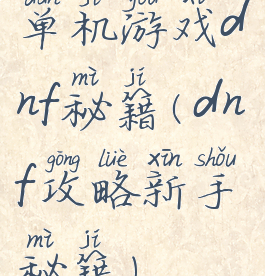 dān jī yóu xì
单机游戏d
mì jí
nf秘籍(dn
gōng lüè xīn shǒu
f攻略新手
mì jí
秘籍)